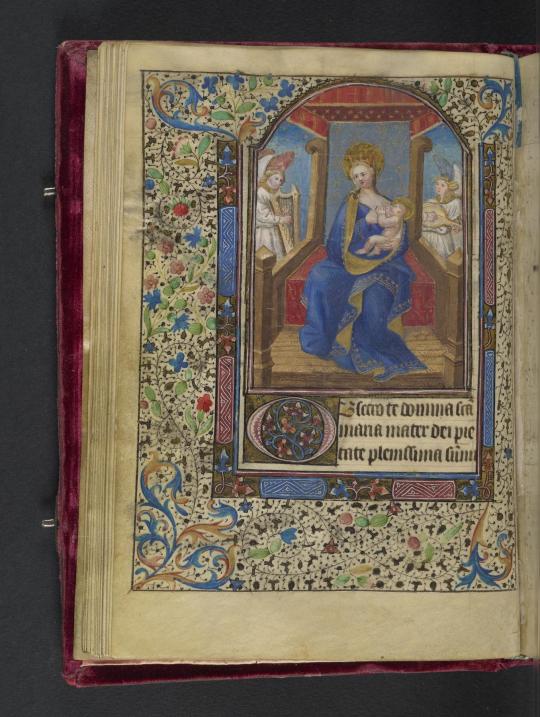 Obsecro te domina sc̄a
maria mater dei pie
tate plenissima sum̄i